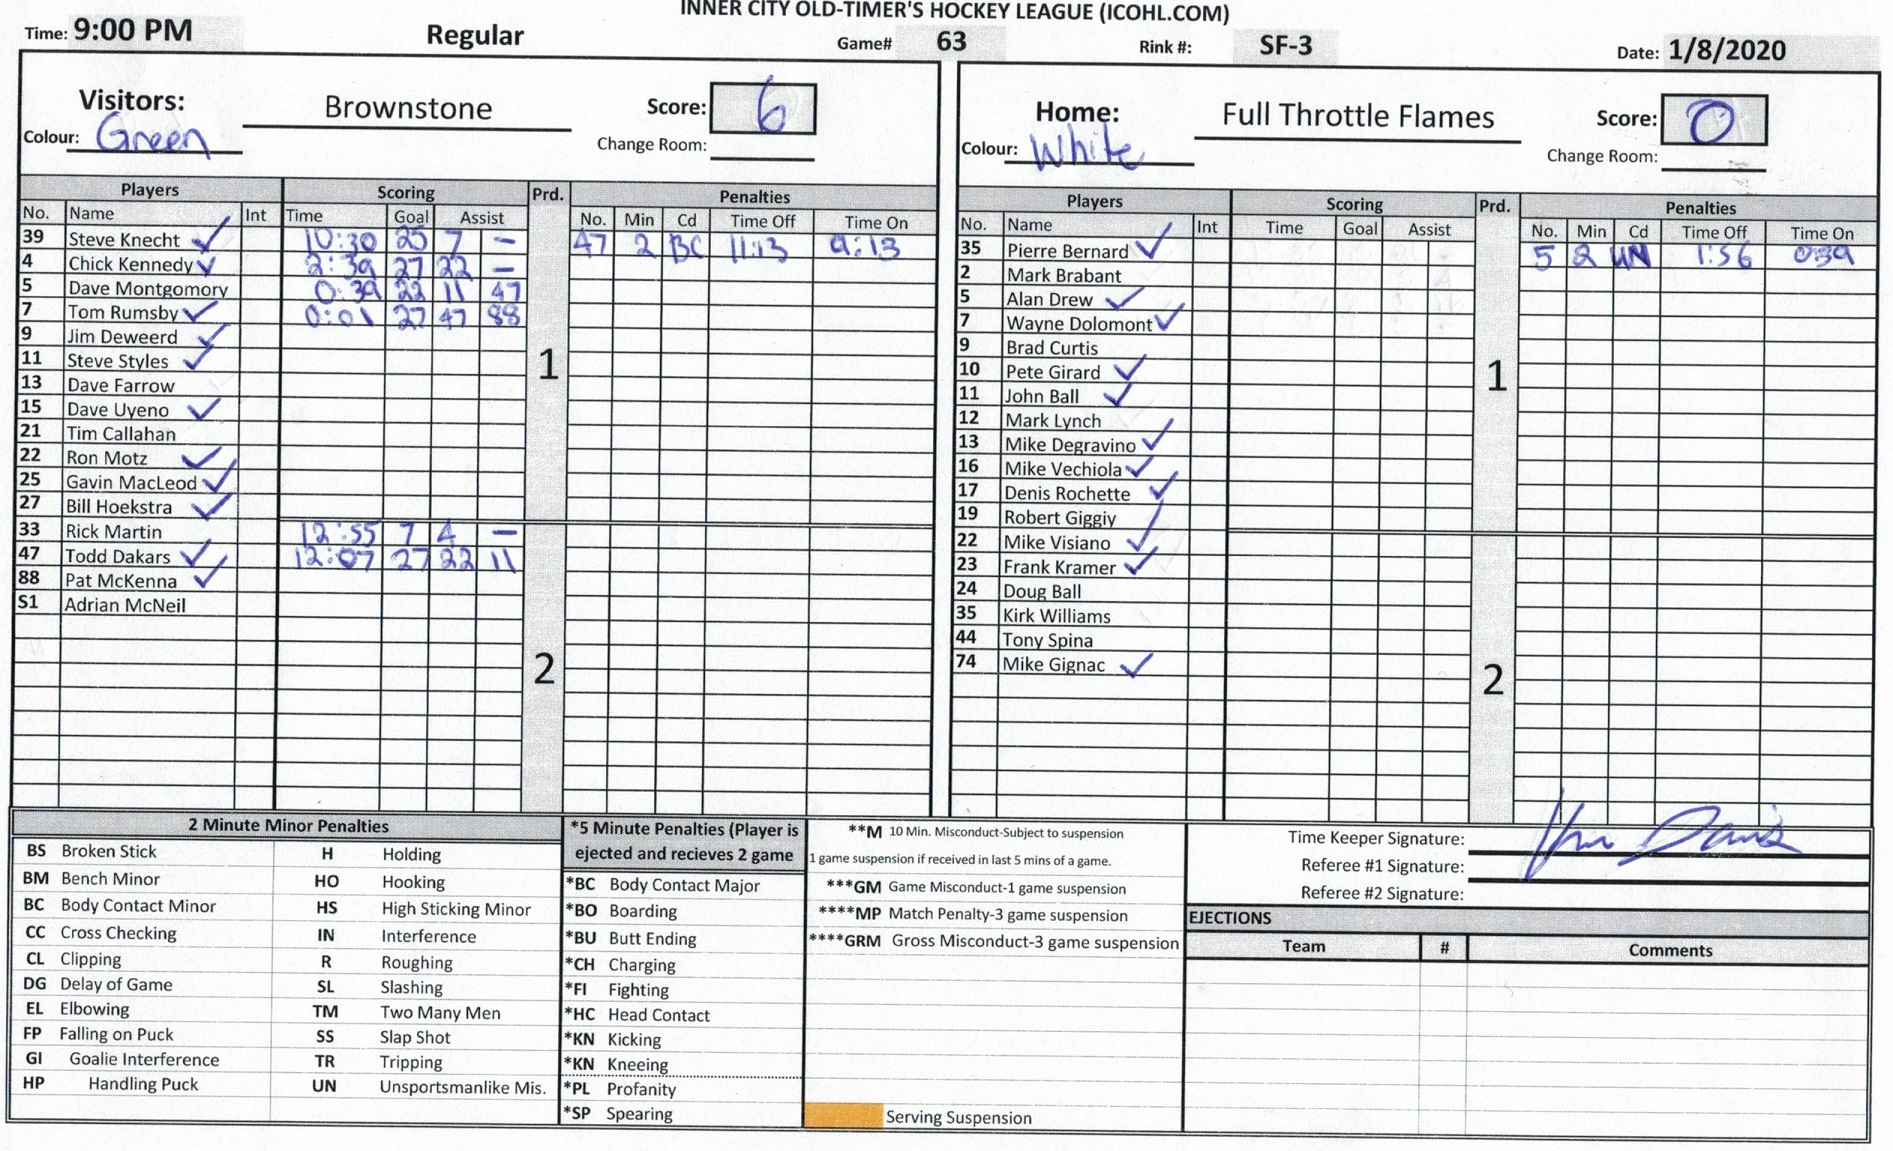 INNER CITY OLD-TIMER'S HOCKEY LEAGUE (ICOHL.COM)
Time: 9:00 PM Regular Game# 63 Rink #: SF-3 Date: 1/8/2020
Visitors: Brownstone Score: 6
Colour: Green Change Room:
Home: Full Throttle Flames Score: 0
Colour: White Change Room:
Players Scoring Prd. Penalties
No. Name Int Time Goal Assist No. Min Cd Time Off Time On
39 Steve Knecht ✓ 10:30 25 7 – 47 2 BC 11:13 9:13
4 Chick Kennedy ✓ 2:39 27 22 –
5 Dave Montgomory 0:39 22 11 47
7 Tom Rumsby ✓ 0:01 27 47 88
9 Jim Deweerd ✓
11 Steve Styles ✓
1
13 Dave Farrow
15 Dave Uyeno ✓
21 Tim Callahan
22 Ron Motz ✓
25 Gavin MacLeod ✓
27 Bill Hoekstra ✓
33 Rick Martin 12:55 7 4 –
47 Todd Dakars ✓ 12:07 27 22 11
88 Pat McKenna ✓
S1 Adrian McNeil
2
Players Scoring Prd. Penalties
No. Name Int Time Goal Assist No. Min Cd Time Off Time On
35 Pierre Bernard ✓ 5 2 UN 1:56 0:39
2 Mark Brabant
5 Alan Drew ✓
7 Wayne Dolomont ✓
9 Brad Curtis
10 Pete Girard ✓
1
11 John Ball ✓
12 Mark Lynch
13 Mike Degravino ✓
16 Mike Vechiola ✓
17 Denis Rochette ✓
19 Robert Giggiy ✓
22 Mike Visiano ✓
23 Frank Kramer ✓
24 Doug Ball
35 Kirk Williams
44 Tony Spina
74 Mike Gignac ✓
2
2 Minute Minor Penalties
BS Broken Stick H Holding
BM Bench Minor HO Hooking
BC Body Contact Minor HS High Sticking Minor
CC Cross Checking IN Interference
CL Clipping R Roughing
DG Delay of Game SL Slashing
EL Elbowing TM Two Many Men
FP Falling on Puck SS Slap Shot
GI Goalie Interference TR Tripping
HP Handling Puck UN Unsportsmanlike Mis.
*5 Minute Penalties (Player is
ejected and recieves 2 game
*BC Body Contact Major
*BO Boarding
*BU Butt Ending
*CH Charging
*FI Fighting
*HC Head Contact
*KN Kicking
*KN Kneeing
*PL Profanity
*SP Spearing
**M 10 Min. Misconduct-Subject to suspension
1 game suspension if received in last 5 mins of a game.
***GM Game Misconduct-1 game suspension
****MP Match Penalty-3 game suspension
****GRM Gross Misconduct-3 game suspension
Serving Suspension
Time Keeper Signature:
Referee #1 Signature:
Referee #2 Signature:
EJECTIONS
Team # Comments